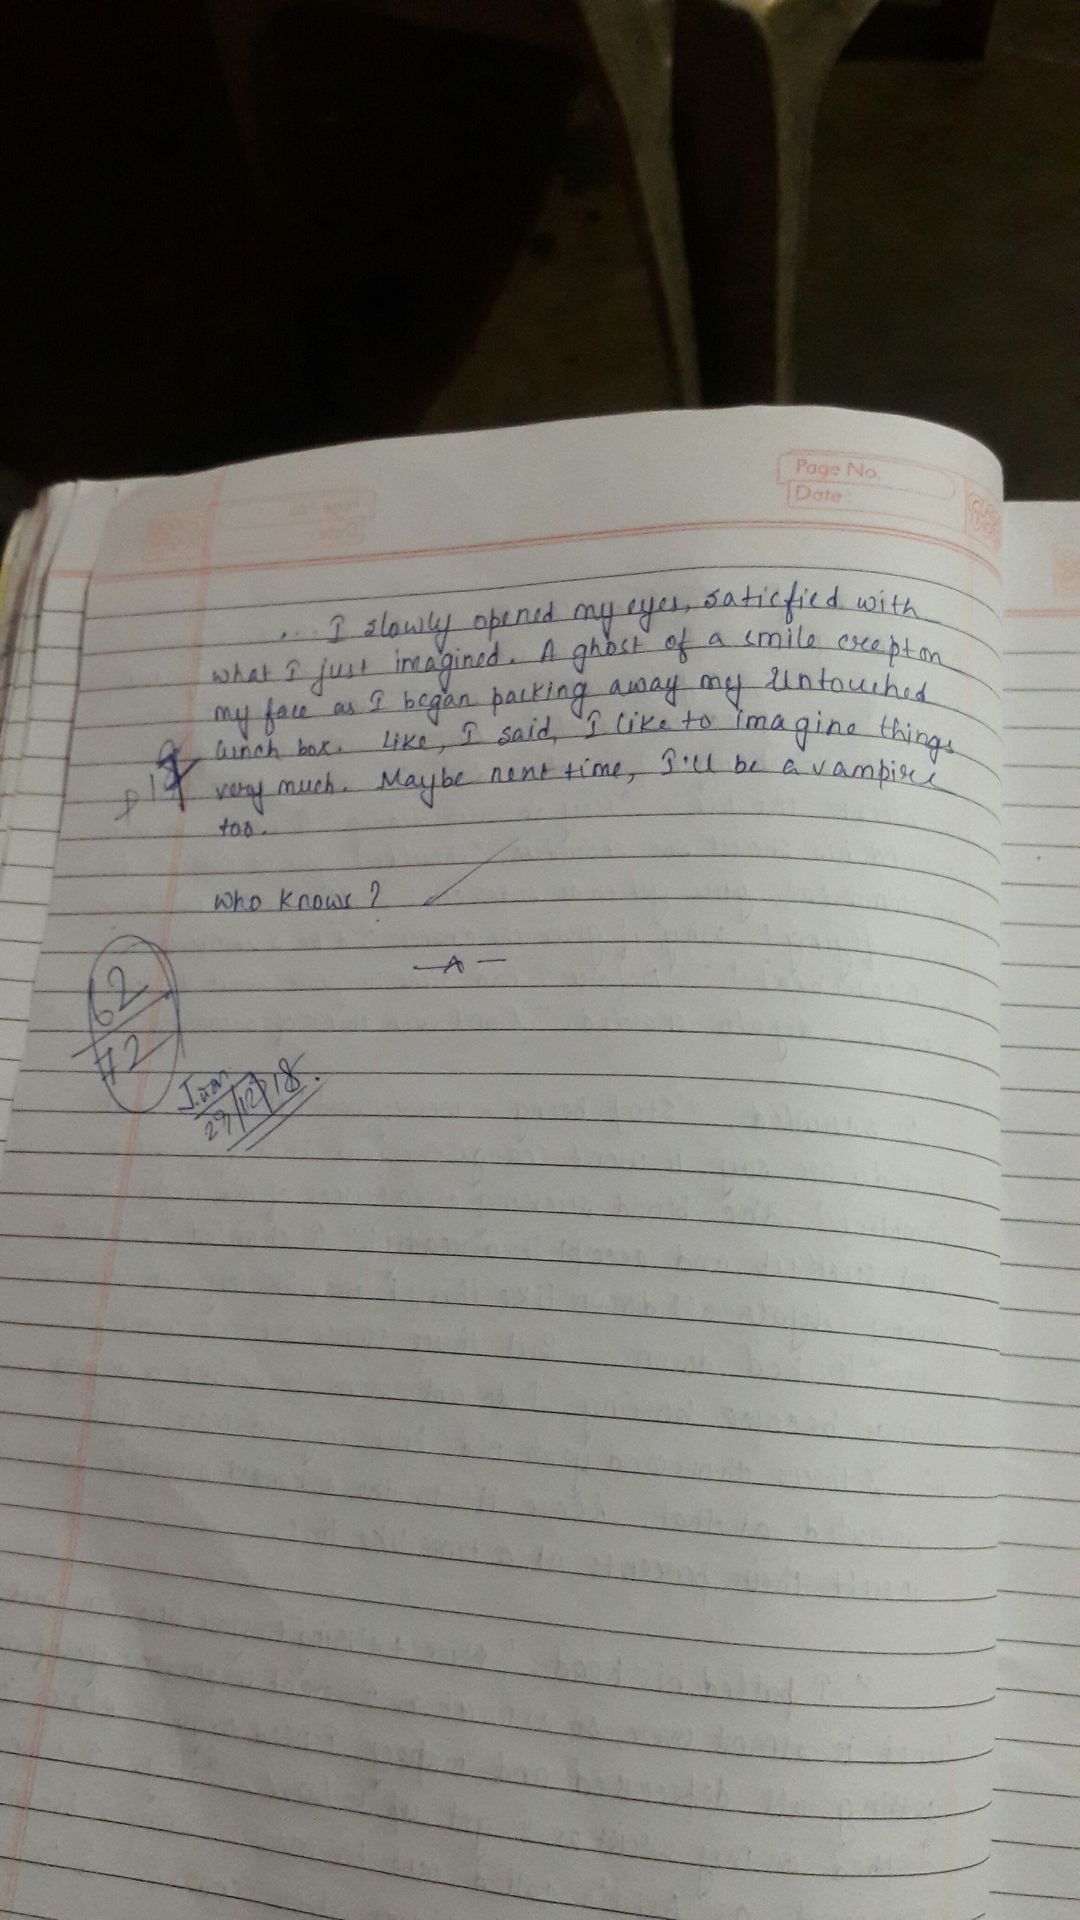 Page No.
Date :
... I slowly opened my eyes, saticfied with
what I just imagined. A ghost of a smile creept on
my face as I began packing away my untouched
lunch box. Like, I said, I like to imagine things
very much. Maybe next time, I'll be a vampire
too.
Who knows?
— A —
62
72
29/12/18.